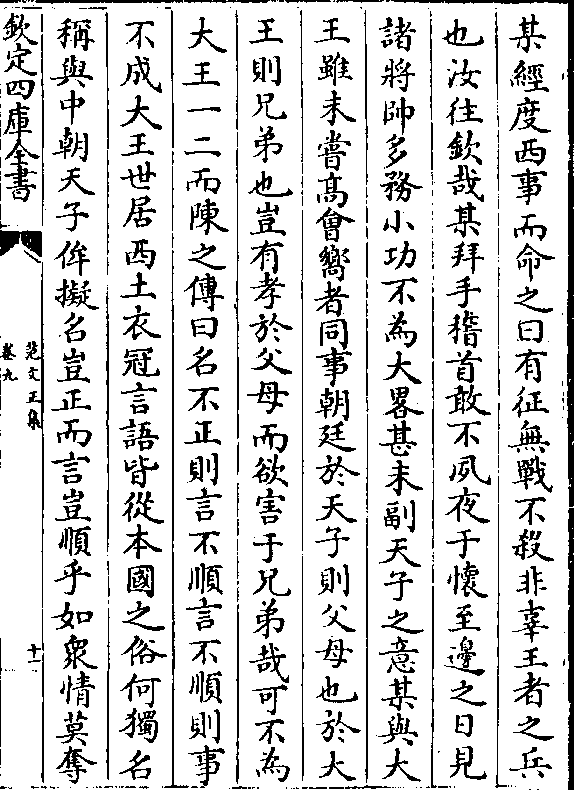 某經度西事而命之曰有征無戰不殺非辜王者之兵
也汝往欽哉某拜手稽首敢不夙夜于懷至邊之日見
諸將帥多務小功不為大畧甚未副天子之意某與大
王雖未嘗髙會嚮者同事朝廷於天子則父母也於大
王則兄弟也豈有孝於父母而欲害于兄弟哉可不為
大王一二而陳之傳曰名不正則言不順言不順則事
不成大王世居西土衣冠言語皆從本國之俗何獨名
稱與中朝天子侔擬名豈正而言豈順乎如衆情莫奪
欽定四庫全書
范文正集
卷九
十一